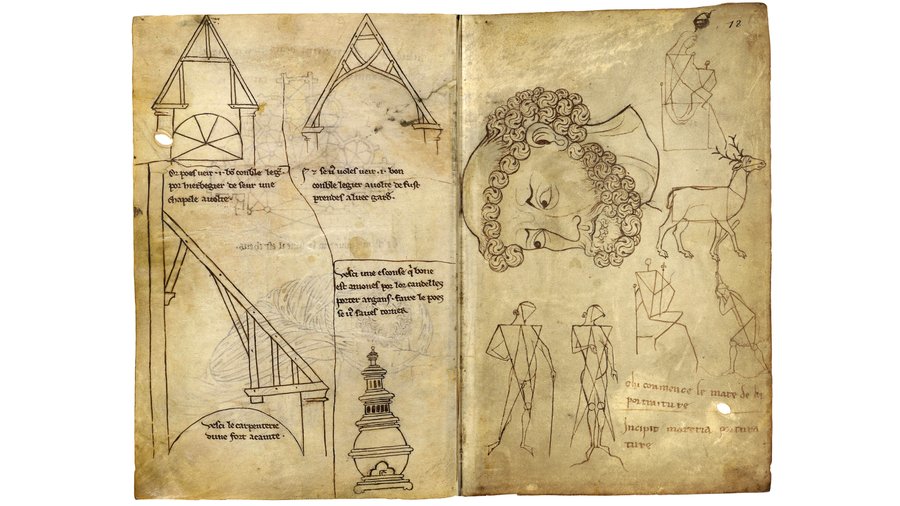 Or poes veir · i · bō conble legr
por hierbegier de seur une
chapele avolte ·
se vº voles veir · i · bon
conble legier avolte de fust
prendes aluec gard ·
Vesci une esconse q̄ bone
est amones por lor candelles
porter argans · faire le poes
se vº saves torner
Vesci le carpenterie
dune fort acainte ·
12
Chi conmence le mate de la
portraiture
Incipit materia portura
ture